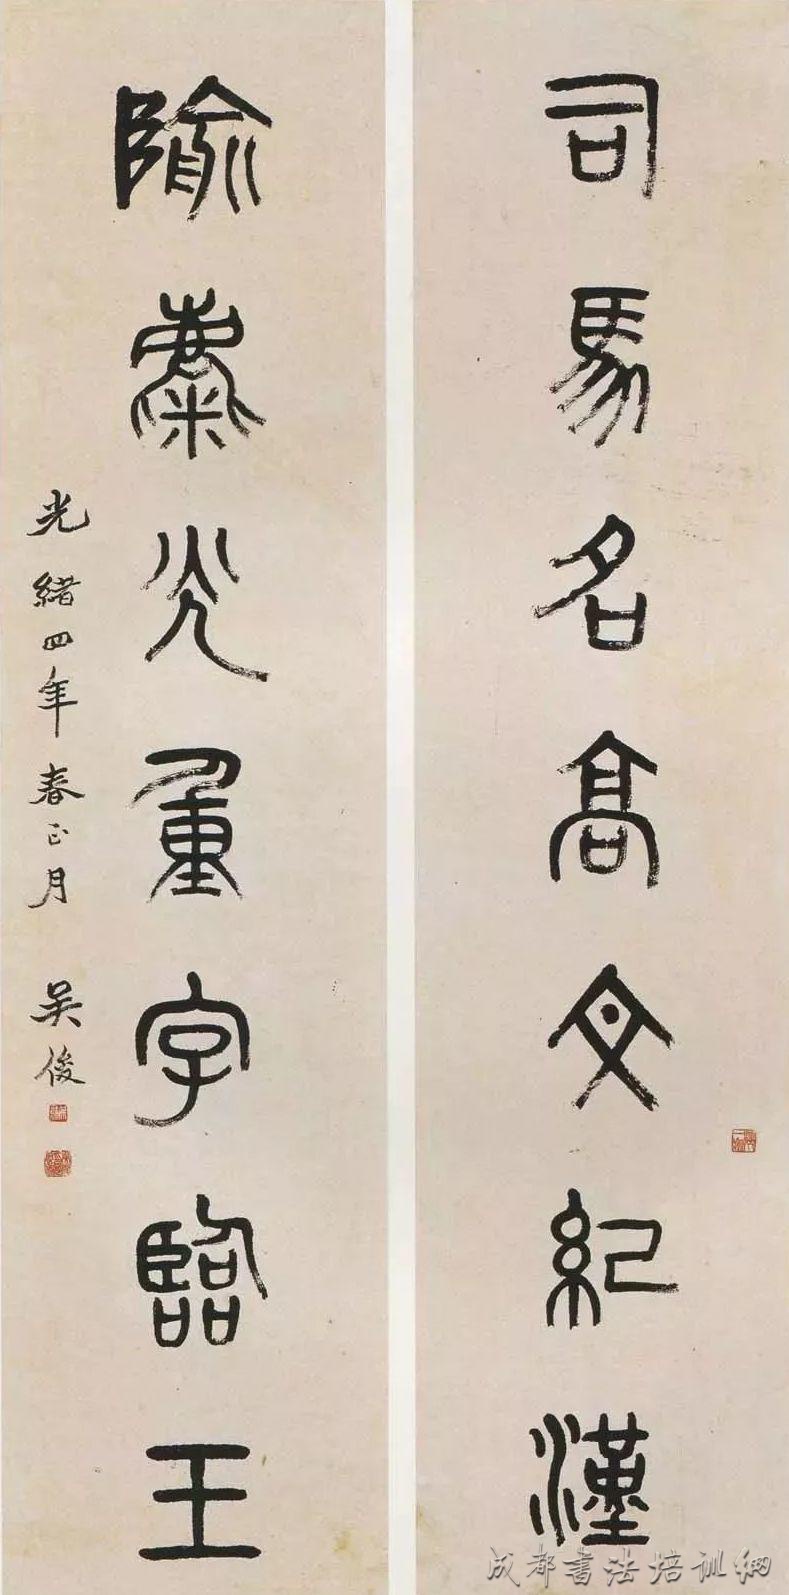 司馬名高文紀漢
隃麋光重字臨王
光緒四年春正月 吴俊
成都書法培训網